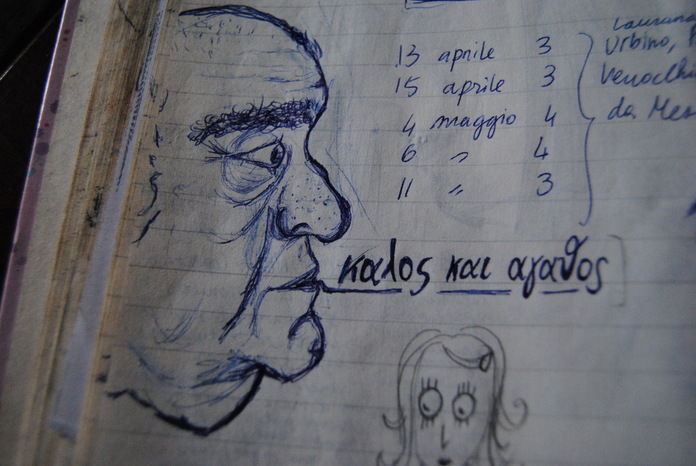 13 aprile 3
15 aprile 3
4 maggio 4
6 " 4
11 " 3
Laurana
Urbino,
da
καλος και αγαθος